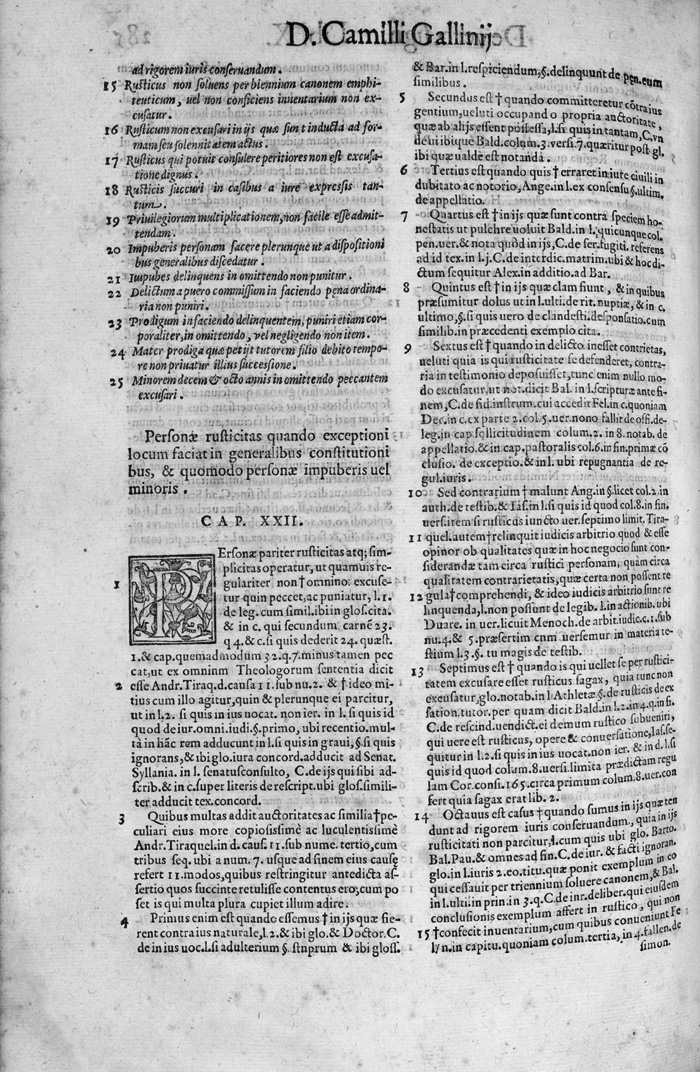 D. Camilli Gallinij
ad rigorem iuris conseruandum.
15 Rusticus non soluens per biennium canonem emphi
teuticum, uel non conficiens inuentarium non ex-
cusatur.
16 Rusticum non excusari in ijs quæ sunt inducta ad for-
mam seu solennitatem actus.
17 Rusticus qui potuit consulere peritiores non est excusa-
tione dignus.
18 Rusticis succuri in casibus a iure expressis tan-
tum.
19 Priuilegiorum multiplicationem, non facile esse admit-
tendam.
20 Impuberis personam facere plerunque ut a dispositioni
bus generalibus discedatur.
21 Impubes delinquens in omittendo non punitur.
22 Delictum a puero commissum in faciendo pœna ordina-
ria non puniri.
23 Prodigum in faciendo delinquentem, puniri etiam cor-
poraliter, in omittendo, vel negligendo non item.
24 Mater prodiga quæ petijt tutorem filio debito tempo-
re non priuatur illius successione.
25 Minorem decem & octo annis in omittendo peccantem
excusari.
Personæ rusticitas quando exceptioni
locum faciat in generalibus constitutioni
bus, & quomodo personæ impuberis uel
minoris.
CAP. XXII.
1 PErsonæ pariter rusticitas atq; sim-
plicitas operatur, ut quamuis re-
gulariter non † omnino excuse-
tur quin peccet, ac puniatur, l.1.
de leg. cum simil. ibi in glos. cita.
& in c. qui secundum carnē 23.
q 4. & c. si quis dederit 24. quæst.
1. & cap. quemadmodum 32. q. 7. minus tamen pec
cat, ut ex omnium Theologorum sententia dicit
2 esse Andr. Tiraq. d. causa 11. sub nu. 2. & † ideo mi-
tius cum illo agitur, quin & plerunque ei parcitur,
ut in l. 2. si quis in ius uocat. non ier. in l. si quis id
quod de iur. omni. iudi. §. primo, ubi recentio. mul-
tà in hāc rem adducunt in l. si quis in graui, §. si quis
ignorans, & ibi glo. iura concord. adducit ad Senat.
Syllania. in l. senatusconsulto, C. de ijs qui sibi ad-
scrib. & in c. super literis de rescript. ubi glos. simili-
ter adducit tex. concord.
3 Quibus multas addit auctoritates ac similia † pe-
culiari eius more copiosissimè ac luculentissimè
Andr. Tiraquel. in d. caus. 11. sub nume. tertio, cum
tribus seq. ubi a num. 7. usque ad finem eius causę
refert 11. modos, quibus restringitur antedicta as-
sertio quos succinte retulisse contentus ero; cum po
set is qui multa plura cupiet illum adire.
4 Primus enim est quando essemus † in ijs quæ fie-
rent contra ius naturale, l. 2. & ibi glo. & Doctor. C.
de in ius uoc. l. si adulterium §. stuprum & ibi gloss.
& Bar. in l. respiciendum, §. delinquunt de pen. cum
similibus.
5 Secundus est † quando committeretur cōtra ius
gentium, ueluti occupando propria auctoritate,
quæ ab alijs essent possessa, l. si quis in tantam, C. vn
de ui ibique Bald. colum. 3. versi. 7. quæritur post gl.
ibi quæ ualde est notanda.
6 Tertius est quando quis † erraret in iure ciuili in
dubitato ac notorio, Ange. in l. ex consensu §. ultim.
de appellatio.
7 Quartus est † in ijs quæ sunt contra speciem ho-
nestatis ut pulchre uoluit Bald. in l. quicunque col.
pen. uer. & nota quòd in ijs, C. de ser. fugiti. referens
ad id tex. in l. j. C. de interdic. matrim. ubi & hoc di-
ctum sequitur Alex. in additio. ad Bar.
8 Quintus est † in ijs quæ clam fiunt, & in quibus
præsumitur dolus ut in l. ulti. de rit. nuptiæ, & in c.
ultimo, §. si quis uero de clandesti. desponsatio. cum
similib. in præcedenti exemplo cita.
9 Sextus est † quando in delicto inesset contrietas,
ueluti quia is qui rusticitate se defenderet, contra-
ria in testimonio deposuisset, tunc enim nullo mo-
do excusatur, ut not. dicit Bal. in l. scripturæ ante fi-
nem, C. de fid. instrum. cui accedit Fel. in c. quoniam
Dec. in c. ex parte 2. col. 5. uer. nono fallit de offi. de-
leg. in cap. sollicitudinem colum. 2. in 8. notab. de
appellatio. & in cap. pastoralis col. 6. in fin. primæ cō
clusio. de exceptio. & in l. ubi repugnantia de re-
gul. iuris.
10 Sed contrarium † malunt Ang. in §. licet col. 2. in
auth. de testib. & Ias. in l. si quis id quod col. 8. in fin.
uersi. item si rusticus iuncto uer. septimo limit. Tira-
11 quel. autem † relinquit iudicis arbitrio quod & esse
opinor ob qualitates quæ in hoc negocio sunt con-
siderandæ tam circa rustici personam, quàm circa
qualitatem contrarietatis, quæ certa non possent re
12 gula † comprehendi, & ideo iudicis arbitrio sunt re
linquenda, l. non possunt de legib. l. in actionib. ubi
Duare. in uer. licuit Menoch. de arbit. iudic. c. 1. sub
nu. 4. & 5. præsertim cum uersemur in materia te-
stium l. 3. §. tu magis de testib.
13 Septimus est † quando is qui uellet se per rustici-
tatem excusare esset rusticus sagax, quia tunc non
excusatur, glo. notab. in l Athletæ §. de rusticis de ex
sation. tutor. per quam dicit Bald. in l. 2. in 4. q. in fi.
C. de rescind. uendict. ei demum rustico subueniti,
qui uere est rusticus, opere & conuersatione, Ias. se-
quitur in l. 2. si quis in ius uocat. non ier. & in d. l. si
quis id quod colum. 8. uersi. limita prædictam regu
lam Cor. consi. 165. circa primum colum. 8. uer. con
fert quia sagax erat lib. 2.
14 Octauus est casus † quando sumus in ijs quæ ten
dunt ad rigorem iuris conseruandum, quia in ijs
rusticitati non parcitur, l. cum quis ubi glo. Barto.
Bal. Pau. & omnes ad fin. C. de iur. & facti ignoran.
glo. in l. iuris 2. eo. titu. quæ ponit exemplum in eo
qui cessauit per triennium soluere canonem, & Bal.
in l. ulti. in prin. in 3. q. C. de iur. deliber. qui eiusdem
conclusionis exemplum affert in rustico, qui non
15 † confecit inuentarium, cum quibus conueniunt Fe
lyn. in capitu. quoniam colum. tertia, in 4. fallen. de
simon.